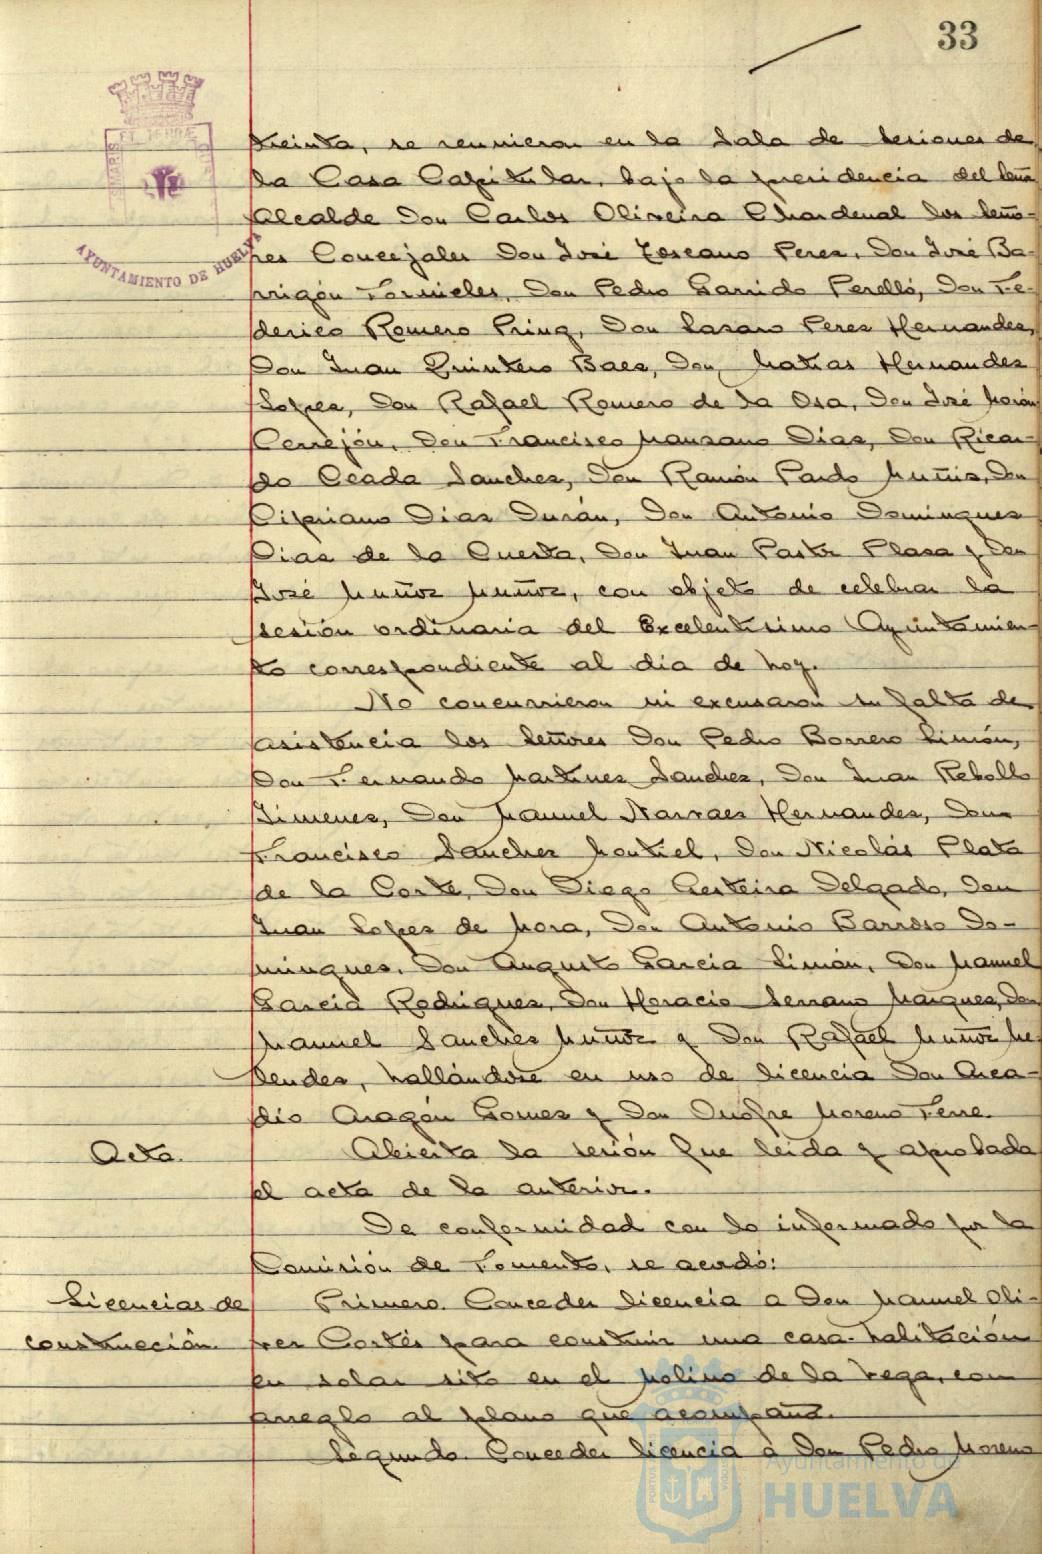 33
treinta, se reunieron en la Sala de sesiones de
la Casa Capitular, bajo la presidencia del Señor
Alcalde Don Carlos Oliveira Chardenal los Seño-
res Concejales Don José Toscano Perez, Don José Ba-
rrigón Fornieles, Don Pedro Garrido Perelló, Don Fe-
derico Romero Prinz, Don Lazaro Perez Hernandez,
Don Juan Quintero Baez, Don Matias Hernandez
Lopez, Don Rafael Romero de la Osa, Don José Morón
Cerrejón, Don Francisco Manzano Diaz, Don Ricar-
do Ceada Sanchez, Don Ramón Pardo Muñiz, Don
Cipriano Diaz Durán, Don Antonio Dominguez
Diaz de la Cuesta, Don Juan Pastor Plaza y Don
José Muñoz Muñoz, con objeto de celebrar la
sesión ordinaria del Excelentisimo Ayuntamien-
to correspondiente al dia de hoy.
No concurrieron ni excusaron su falta de
asistencia los Señores Don Pedro Borrero Limón,
Don Fernando Martinez Sanchez, Don Juan Rebollo
Jimenez, Don Manuel Narvaez Hernandez, Don
Francisco Sanchez Montiel, Don Nicolás Plata
de la Corte, Don Diego Gesteira Delgado, Don
Juan Lopez de Mora, Don Antonio Barroso Do-
minguez, Don Augusto Garcia Limón, Don Manuel
Garcia Rodriguez, Don Horacio Serrano Marquez, Don
Manuel Sanchez Muñoz y Don Rafael Muñoz Me-
lendez, hallándose en uso de licencia Don Arca-
dio Aragón Gomez y Don Onofre Moreno Ferre.
Acta.
Abierta la sesión fue leida y aprobada
el acta de la anterior.
De conformidad con lo informado por la
Comisión de Fomento, se acordó:
Licencias de
construcción.
Primero. Conceder licencia a Don Manuel Oli-
ver Cortés para construir una casa-habitación
en solar sito en el Molino de la Vega, con
arreglo al plano que acompaña.
Segundo. Conceder licencia a Don Pedro Moreno
AYUNTAMIENTO DE HUELVA
Ayuntamiento de
HUELVA